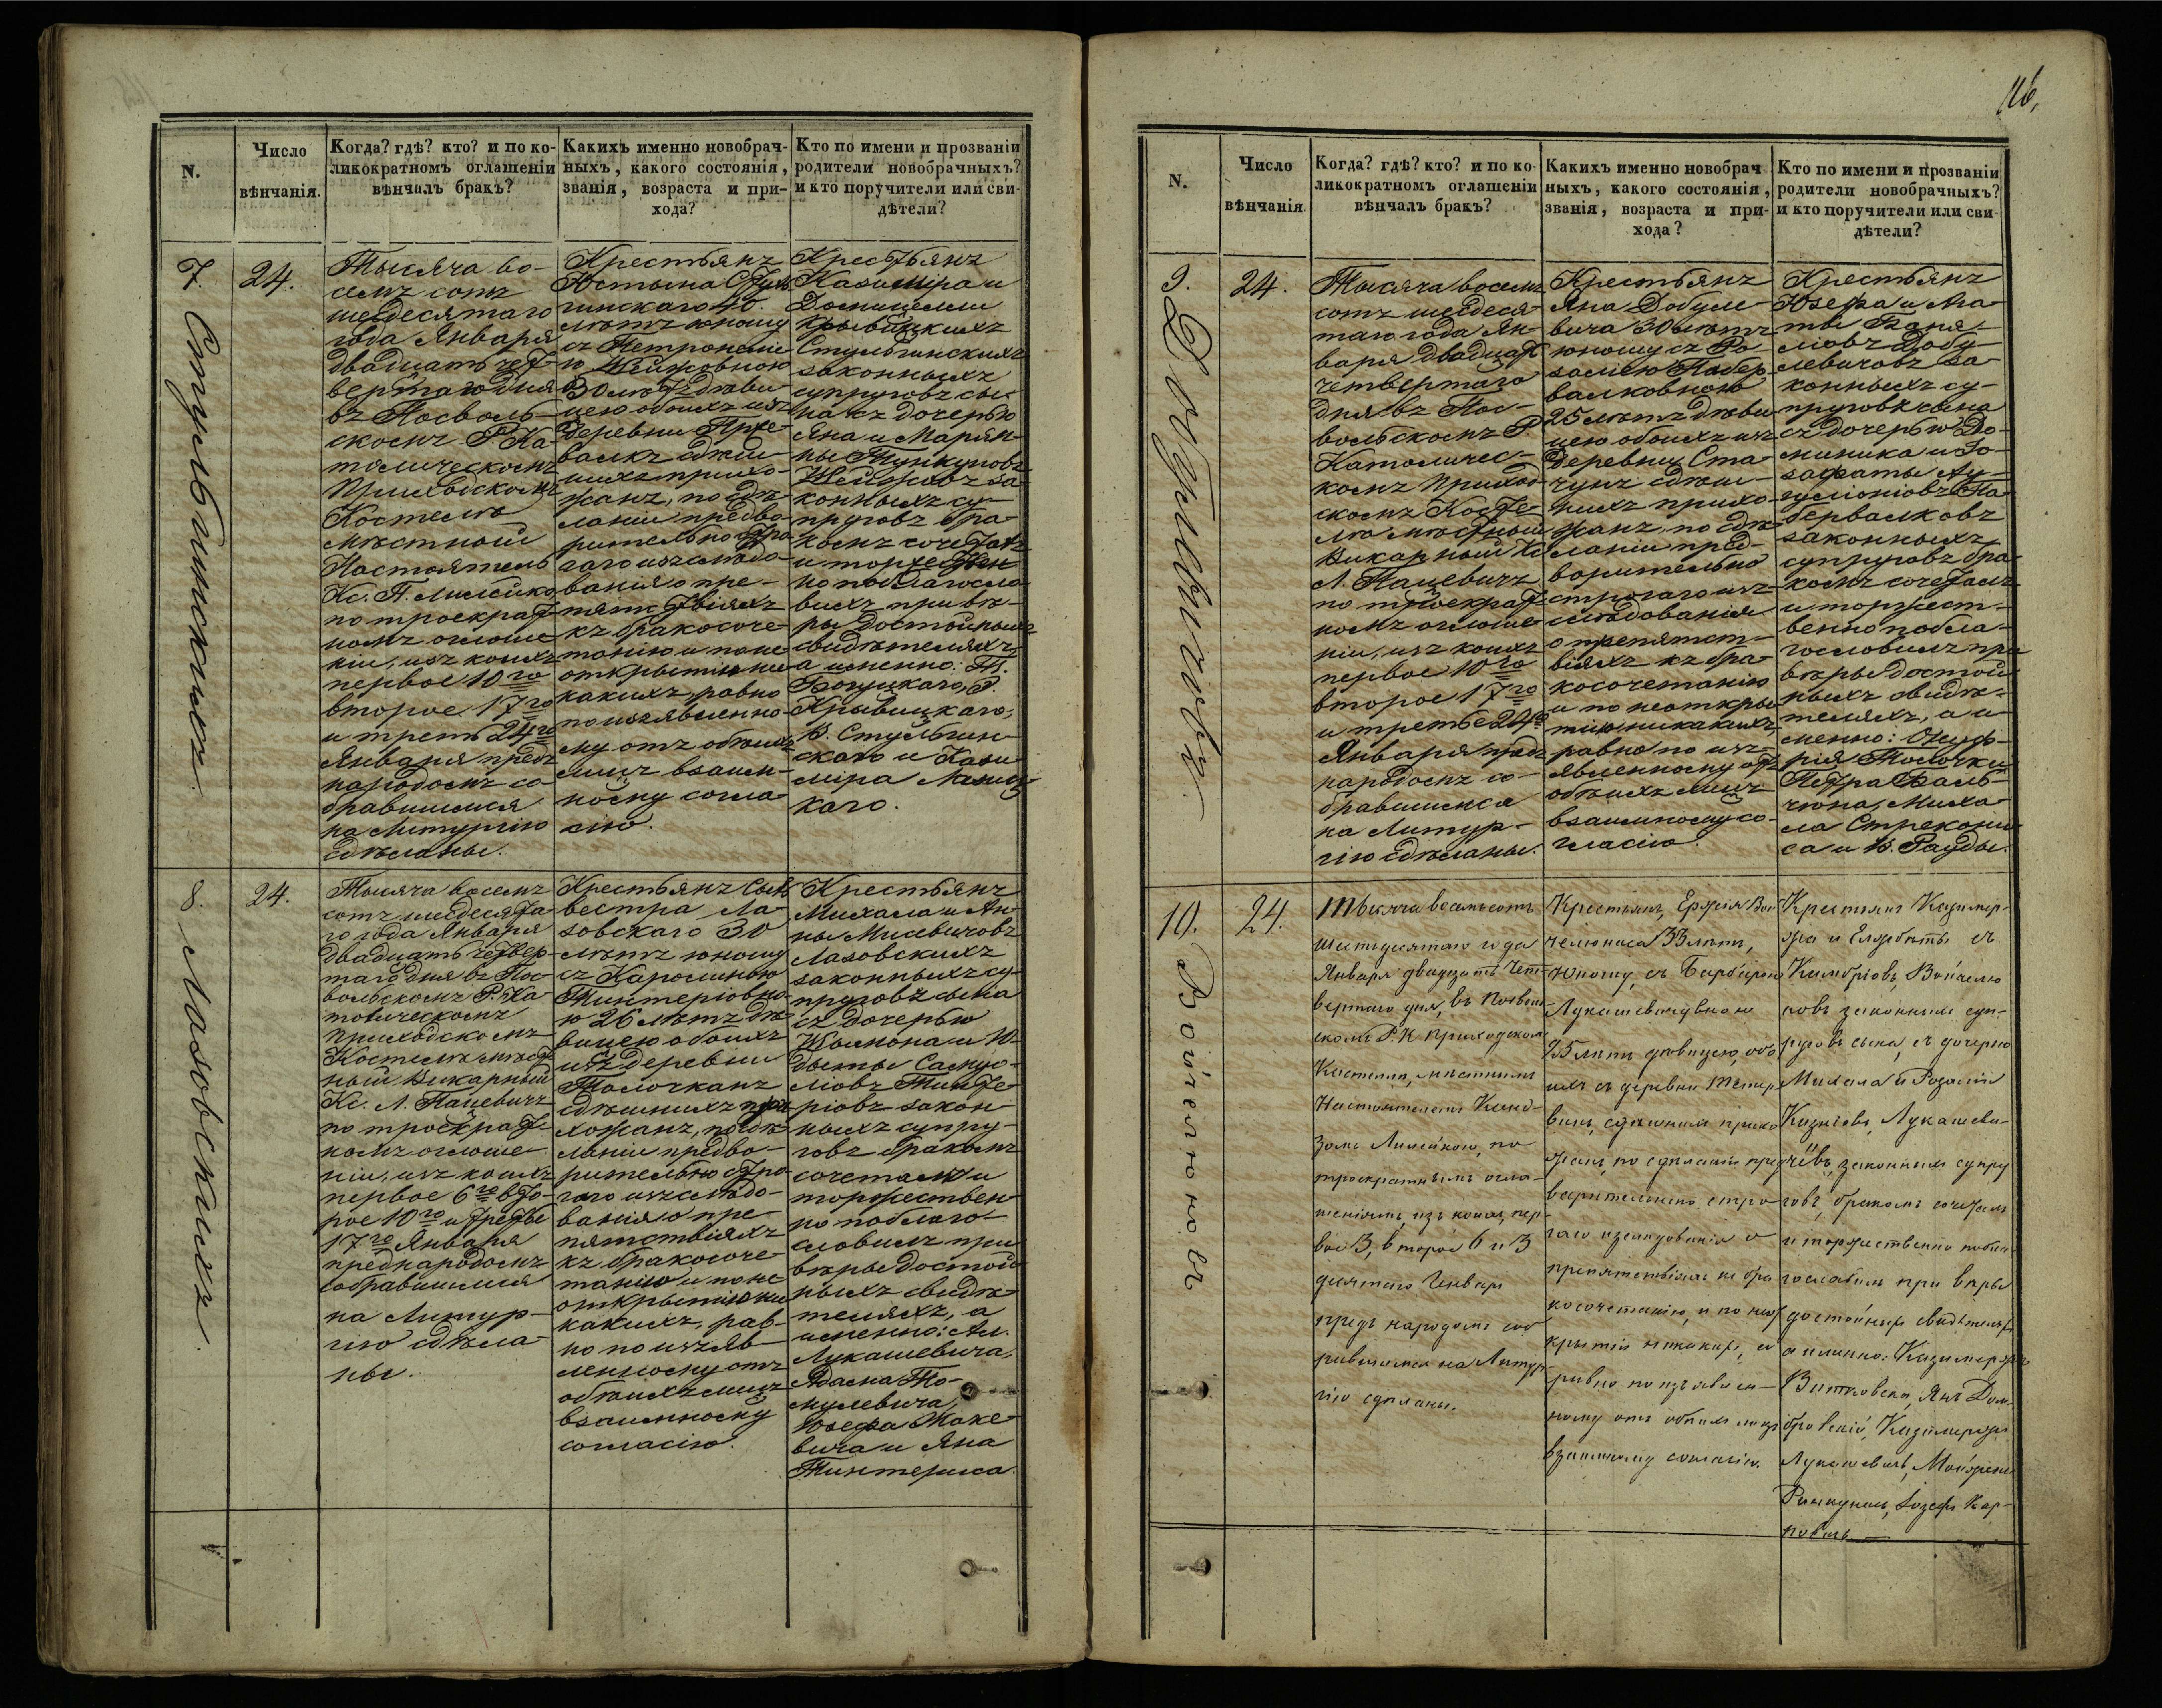 116.
N.
Число
вѣнчанія.
Когда? гдѣ? кто? и по ко-
ликократномъ оглашеніи
вѣнчалъ бракъ?
Какихъ именно новобрач-
ныхъ, какого состоянія,
званія, возраста и при-
хода?
Кто по имени и прозванію
родители новобрачныхъ?
и кто поручители или сви-
дѣтели?
7.
Стульгинскихъ.
24.
Тысяча во-
семъ сотъ
шесдесятаго
года Января
двадцать чет-
вертаго дня
въ Посволь-
скомъ Р. Ка-
толическомъ
Приходскомъ
Костелѣ
мѣстный
Настоятель
Кс. П. Лимейко
по троекрат-
номъ оглоше-
ніи, изъ коихъ
первое 10го
второе 17го
и треть 24го
Января предъ
народомъ со-
бравшимся
на Литургію
сдѣланы.
Крестьянъ
Юстына Стуль-
гинскаго 40.
лѣтъ юношу
съ Петронелі-
ю Шейжовною
30 лѣтъ дѣви-
цею обоихъ изъ
деревни
сдѣш-
нихъ прихо-
жанъ, по сдѣ-
ланіи предва-
рительно стро-
гаго изслѣдо-
ванія о пре-
пятствіяхъ
къ бракосоче-
танію и по не
открытію ни
какихъ, равно
по изъявленно-
му отъ обѣихъ
лицъ взаим-
ному согла-
сію.
Крестьянъ
Казиміра и
Доминцелли
Крывицкихъ
Стульгинскихъ
законныхъ
супруговъ сы-
на съ дочерью
Яна и Маріян-
ны Тункуновъ
Шейжовъ за-
конныхъ су-
пруговъ бра-
комъ сочеталъ
и торжествен-
но поблагосло-
вилъ при вѣ-
ры достойныхъ
свидѣтеляхъ,
а именно: П.
Богуцкаго, Э.
Крывицкаго,
В. Стульгин-
скаго и Кази-
міра
каго.
8.
Лазовскихъ.
24.
Тысяча восемъ
сотъ шесдеся та-
го года Января
двадцать четвер-
таго дня въ Пос-
вольскомъ Р. Ка-
толическомъ
Приходскомъ
Костелѣ мѣст-
ный Викарный
Кс. Л. Пацевичъ
по троекрат-
номъ оглоше-
ніи, изъ коихъ
первое 6го вто-
рое 10го и третье
17го Января
предъ народомъ
собравшимся
на Литур-
гію сдѣла-
ны.
Крестьянъ Силь-
вестра Ла-
зовскаго 30
лѣтъ юношу
съ Каролиною
Тинтеріовно-
ю 26 лѣтъ дѣ-
вицею обоихъ
изъ деревни
Толочканъ
сдѣшнихъ при-
хожанъ, по сдѣ-
ланіи предва-
рительно стро-
гаго изслѣдо-
ванія о пре-
пятствіяхъ
къ бракосоче-
танію и по не
открытію ни
какихъ, рав-
но по изъяв-
ленному отъ
обѣихъ лицъ
взаимному
согласію.
Крестьянъ
Михала и Ан-
ны Мисевичовъ
Лазовскихъ
законныхъ су-
пруговъ сына
съ дочерью
Шымона и Ю-
дыты Самуо-
ліовъ Тинте-
ріовъ закон-
ныхъ супру-
говъ бракомъ
сочеталъ и
торжествен-
но поблаго-
словилъ при
вѣры достой-
ныхъ свидѣ-
теляхъ, а
именно: Ал.
Лукашевича,
Адама То-
мулевича,
Юзефа Жаке-
вича и Яна
Тинтериса.
N.
Число
вѣнчанія.
Когда? гдѣ? кто? и по ко-
ликократномъ оглашеніи
вѣнчалъ бракъ?
Какихъ именно новобрач-
ныхъ, какого состоянія,
званія, возраста и при-
хода?
Кто по имени и прозванію
родители новобрачныхъ?
и кто поручители или сви-
дѣтели?
9.
Добулевичовъ.
24.
Тысяча восемъ
сотъ шесдеся-
таго года Ян-
варя двадцать
четвертаго
дня въ Пос-
вольскомъ Р.
Католичес-
комъ Приход-
скомъ Косте-
лѣ мѣстный
Викарный Кс.
Л. Пацевичъ
по троекрат-
номъ оглоше-
ніи, изъ коихъ
первое 10го
второе 17го
и третье 24го
Января предъ
народомъ со-
бравшимся
на Литур-
гію сдѣланы.
Крестьянъ
Яна Добуле-
вича 30 лѣтъ
юношу съ Ро-
заліею Набер-
валковною
25 лѣтъ дѣви-
цею обоихъ изъ
деревни Ста-
чунъ сдѣш-
нихъ прихо-
жанъ, по сдѣ-
ланіи пред-
ворительно
строгаго из-
слѣдованія
о препятст-
віяхъ къ бра-
косочетанію
и по неоткры-
тію никакихъ
равно по изъ-
явленному отъ
обѣихъ лицъ
взаимному со-
гласію.
Крестьянъ
Юзефа и Ма-
ты Баня-
ліовъ Добу-
левичовъ за-
конныхъ су-
пруговъ сына
съ дочерью До-
миника и Іо-
зафаты Ау-
гуліоніовъ На-
бервалковъ
законныхъ
супруговъ бра-
комъ сочеталъ
и торжест-
венно побла-
гословилъ при
вѣры достой-
ныхъ свидѣ-
теляхъ, а и-
менно: Онуф-
рія Толочки
Петра Валь-
чюна, Миха-
ла Стрекони-
са и В. Рауды.
10.
Войчелюновъ
24.
Тысяча восемьсотъ
шестьдесятаго года
Января двадцать чет-
вертаго дня, въ Посволь-
скомъ Р. К. Приходскомъ
Костелѣ, мѣстнымъ
Настоятелемъ Ксенд-
зомъ Лимейкою, по
троекратнымъ огла-
шеніямъ, изъ коихъ, пер-
вое 3, второе 6 и 3
десятаго Января
предъ народомъ соб-
равшимся на Литур-
гію сдѣланы.
Крестьянъ, Ержія Вой-
челюнаса 33 лѣтъ,
юношу, съ Барбарою
Лукашевичувною
25 лѣтъ дѣвицею, обо-
ихъ съ деревни
сдѣшнихъ прихо-
жанъ, по сдѣланіи пред-
варительно стро-
гаго изслѣдованія о
препятствіяхъ къ бра-
косочетанію, и по неот-
крытіи никакихъ, а
равно по изъявлен-
ному отъ обѣихъ лицъ
взаимному согласію.
Крестьянъ Казимер-
жа и Елзбѣты съ
Войчелю-
новъ законныхъ суп-
руговъ сына, съ дочерью
Михала и Розаліи
Лукашеви-
чёвъ, законныхъ супру-
говъ, бракомъ сочеталъ
и торжественно побла-
гословилъ при вѣры
достойныхъ свидѣтеляхъ
а именно: Казимержъ
Витковскій, Янъ Дом-
бровскій, Казимержъ
Лукашевичъ,
Іозефъ Кар-
повичъ